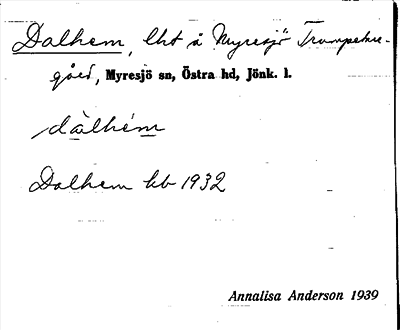 Dalhem, lht å Myresjö Trumpetare-
gård, Myresjö sn, Östra hd, Jönk. l.
dàlhém
Dalhem kb 1932
Annalisa Anderson 1939